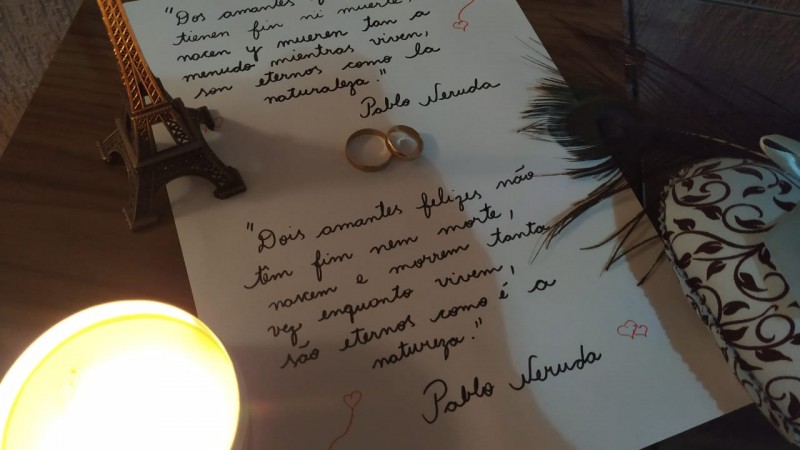 "Dos amantes
tienen fin ni muerte,
nacen y mueren tan a
menudo mientras viven,
son eternos como la
naturaleza."
Pablo Neruda
"Dois amantes felizes não
têm fim nem morte,
nascem e morrem tanta
vez enquanto vivem,
são eternos como é a
natureza."
Pablo Neruda